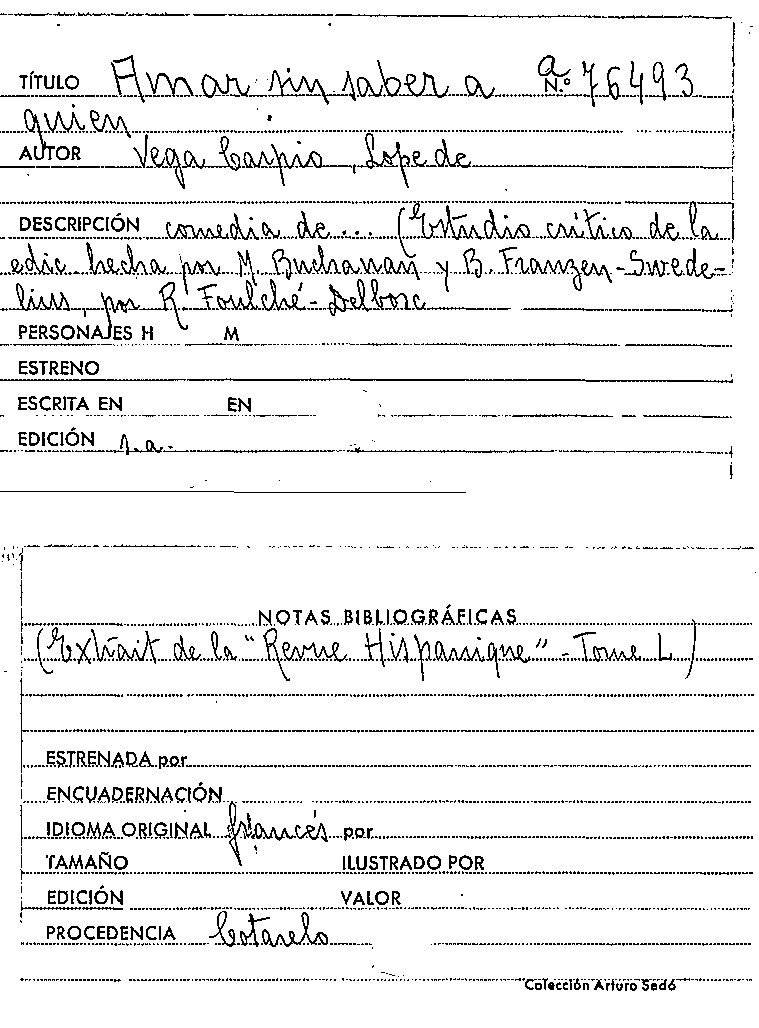 TÍTULO Amar sin saber a N.º a 76493
quien
AUTOR Vega Carpio, Lope de
DESCRIPCIÓN comedia de... (Estudio crítico de la
edic. hecha por M. Buchanan y B. Franzen-Swede-
lius, por R. Foulché-Delbosc
PERSONAJES H M
ESTRENO
ESCRITA EN EN
EDICIÓN s.a.
NOTAS BIBLIOGRÁFICAS
(Extrait de la "Revue Hispanique" - Tome L)
ESTRENADA por
ENCUADERNACIÓN
IDIOMA ORIGINAL francés por
TAMAÑO ILUSTRADO POR
EDICIÓN VALOR
PROCEDENCIA Cotarelo
Colección Arturo Sedó